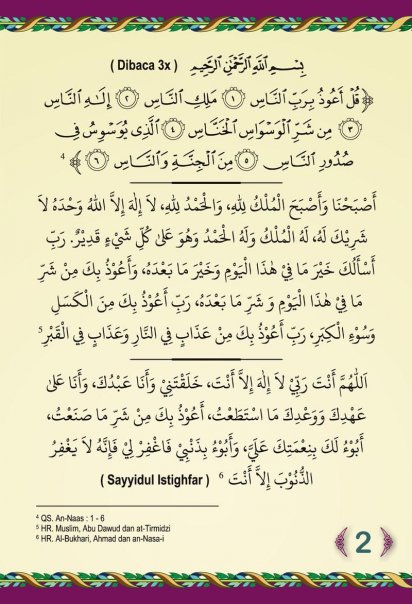 ( Dibaca 3x ) بِسْمِ اللهِ الرَّحْمٰنِ الرَّحِيْمِ
﴿ قُلْ أَعُوذُ بِرَبِّ النَّاسِ ۝١ مَلِكِ النَّاسِ ۝٢ إِلَـٰهِ النَّاسِ
۝٣ مِن شَرِّ الْوَسْوَاسِ الْخَنَّاسِ ۝٤ الَّذِى يُوَسْوِسُ فِى
صُدُورِ النَّاسِ ۝٥ مِنَ الْجِنَّةِ وَالنَّاسِ ۝٦ ﴾ 4
أَصْبَحْنَا وَأَصْبَحَ الْمُلْكُ لِلهِ، وَالْحَمْدُ لِلهِ، لاَ إِلَهَ إِلاَّ اللهُ وَحْدَهُ لاَ
شَرِيْكَ لَهُ، لَهُ الْمُلْكُ وَلَهُ الْحَمْدُ وَهُوَ عَلَى كُلِّ شَيْءٍ قَدِيْرٌ. رَبِّ
أَسْأَلُكَ خَيْرَ مَا فِيْ هٰذَا الْيَوْمِ وَخَيْرَ مَا بَعْدَهُ، وَأَعُوْذُ بِكَ مِنْ شَرِّ
مَا فِيْ هٰذَا الْيَوْمِ وَ شَرِّ مَا بَعْدَهُ، رَبِّ أَعُوْذُ بِكَ مِنَ الْكَسَلِ
وَسُوْءِ الْكِبَرِ، رَبِّ أَعُوْذُ بِكَ مِنْ عَذَابٍ فِي النَّارِ وَعَذَابٍ فِي الْقَبْرِ 5
اَللَّهُمَّ أَنْتَ رَبِّيْ لاَ إِلَهَ إِلاَّ أَنْتَ، خَلَقْتَنِيْ وَأَنَا عَبْدُكَ، وَأَنَا عَلَى
عَهْدِكَ وَوَعْدِكَ مَا اسْتَطَعْتُ، أَعُوْذُ بِكَ مِنْ شَرِّ مَا صَنَعْتُ،
أَبُوْءُ لَكَ بِنِعْمَتِكَ عَلَيَّ، وَأَبُوْءُ بِذَنْبِيْ فَاغْفِرْ لِيْ فَإِنَّهُ لاَ يَغْفِرُ
الذُّنُوْبَ إِلاَّ أَنْتَ 6 ( Sayyidul Istighfar )
4 QS. An-Naas : 1 - 6
5 HR. Muslim, Abu Dawud dan at-Tirmidzi
6 HR. Al-Bukhari, Ahmad dan an-Nasa-i
2